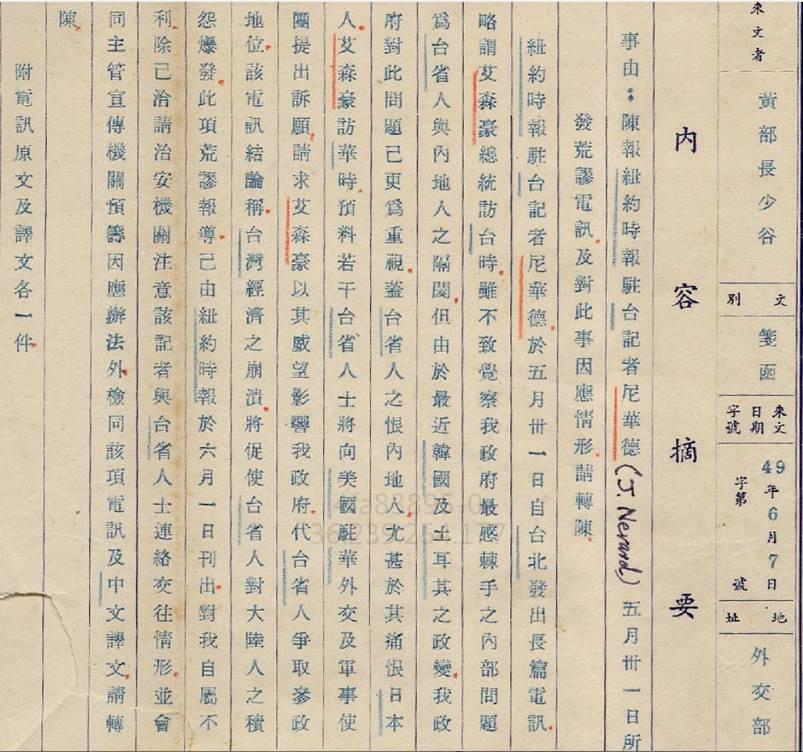 來文者 黃部長少谷 文別 箋函 來文日期字號 49年6月7日 字第 號 地址 外交部
內容摘要
事由：陳報紐約時報駐台記者尼華德(J. Nevard)五月卅一日所
發荒謬電訊及對此事因應情形請轉陳
紐約時報駐台記者尼華德於五月卅一日自台北發出長篇電訊
略謂艾森豪總統訪台時雖不致覺察我政府最感棘手之內部問題
為台省人與內地人之隔閡但由於最近韓國及土耳其之政變我政
府對此問題已更為重視蓋台省人之恨內地人尤甚於其痛恨日本
人艾森豪訪華時預料若干台省人士將向美國駐華外交及軍事使
團提出訴願請求艾森豪以其威望影響我政府代台省人爭取參政
地位該電訊結論稱台灣經濟之崩潰將促使台省人對大陸人之積
怨爆發此項荒謬報導已由紐約時報於六月一日刊出對我自屬不
利除已洽請治安機關注意該記者與台省人士連絡交往情形並會
同主管宣傳機關預籌因應辦法外檢同該項電訊及中文譯文請轉
陳
附電訊原文及譯文各一件